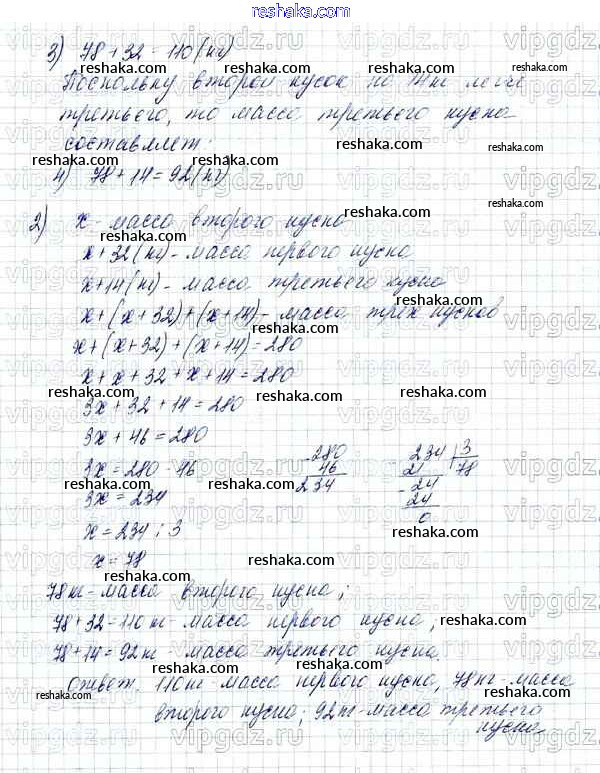 reshaka.com
3) 78 + 32 = 110 (кг)
Поскольку второй кусок на 14 кг легче
третьего, то масса третьего куска
составляет:
4) 78 + 14 = 92 (кг)
2) x - масса второго куска
x + 32 (кг) - масса первого куска
x + 14 (кг) - масса третьего куска
x + (x + 32) + (x + 14) - масса трех кусков
x + (x + 32) + (x + 14) = 280
x + x + 32 + x + 14 = 280
3x + 32 + 14 = 280
3x + 46 = 280
3x = 280 - 46
3x = 234
x = 234 : 3
x = 78
- 280
46
234
234 | 3
21 78
- 24
24
0
78 кг - масса второго куска;
78 + 32 = 110 кг - масса первого куска;
78 + 14 = 92 кг - масса третьего куска.
Ответ. 110 кг - масса первого куска, 78 кг - масса
второго куска; 92 кг - масса третьего
куска.